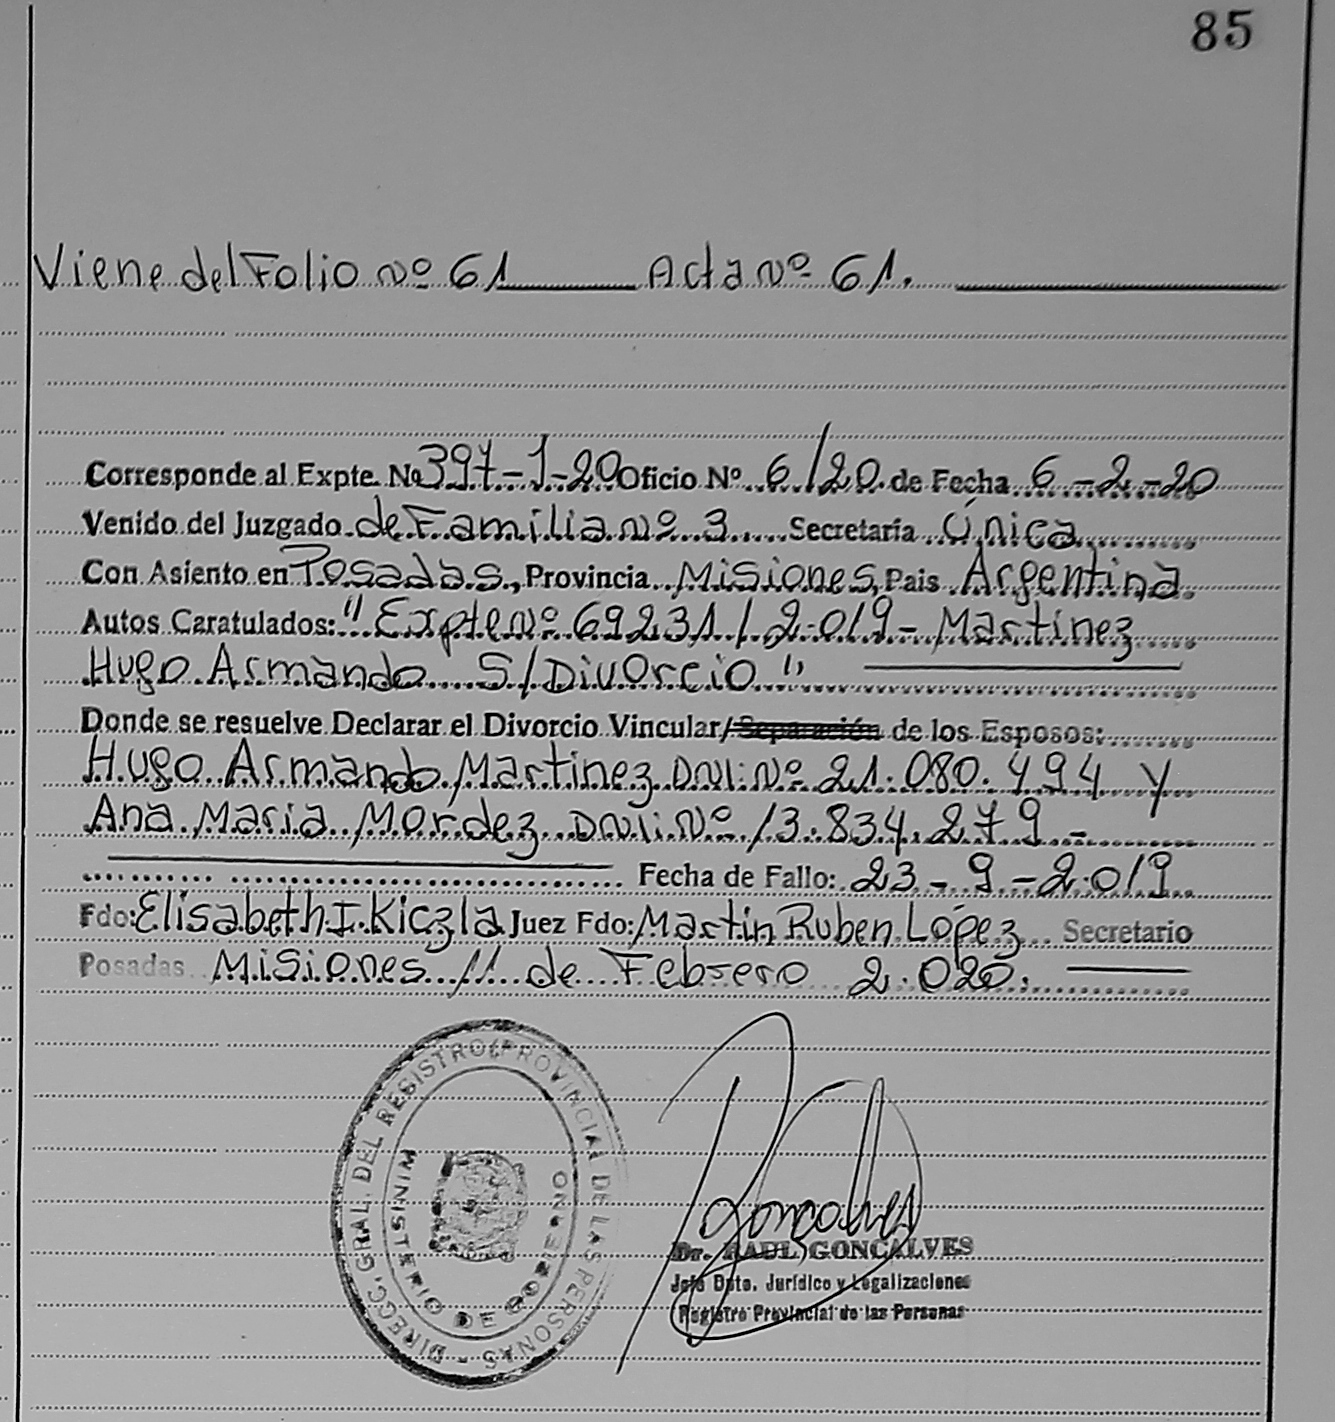 85
Viene del Folio Nº 61 Acta Nº 61.
Corresponde al Expte. Nº 397-1-20 Oficio Nº 6/20 de Fecha 6-2-20
Venido del Juzgado de Familia Nº 3 Secretaría Única
Con Asiento en Posadas, Provincia Misiones, Pais Argentina
Autos Caratulados: "Expte Nº 69231/2019- Martinez
Hugo Armando S/Divorcio"
Donde se resuelve Declarar el Divorcio Vincular/Separación de los Esposos:
Hugo Armando Martinez DNI: Nº 21.080.494 y
Ana Maria Mordez DNI. Nº 13.834.279 -
Fecha de Fallo: 23-9-2019
Fdo: Elisabeth I. Kiczla Juez Fdo: Martin Ruben López Secretario
Posadas Misiones 11 de Febrero 2.020.
DIRECC. GRAL. DEL REGISTRO PROVINCIAL DE LAS PERSONAS -
MINISTERIO DE GOBIERNO
Goncalves
Dr. RAUL GONCALVES
Jefe Dpto. Jurídico y Legalizaciones
Registro Provincial de las Personas